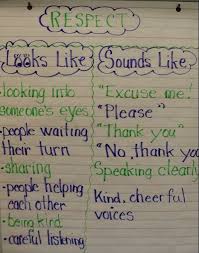 RESPECT
Looks Like
-looking into
someone's eyes
-people waiting
their turn
-sharing
-people helping
each other
-being kind
-careful listening
Sounds Like
"Excuse me!"
"Please"
"Thank you"
"No, thank you
Speaking clearly
Kind, cheerful
voices